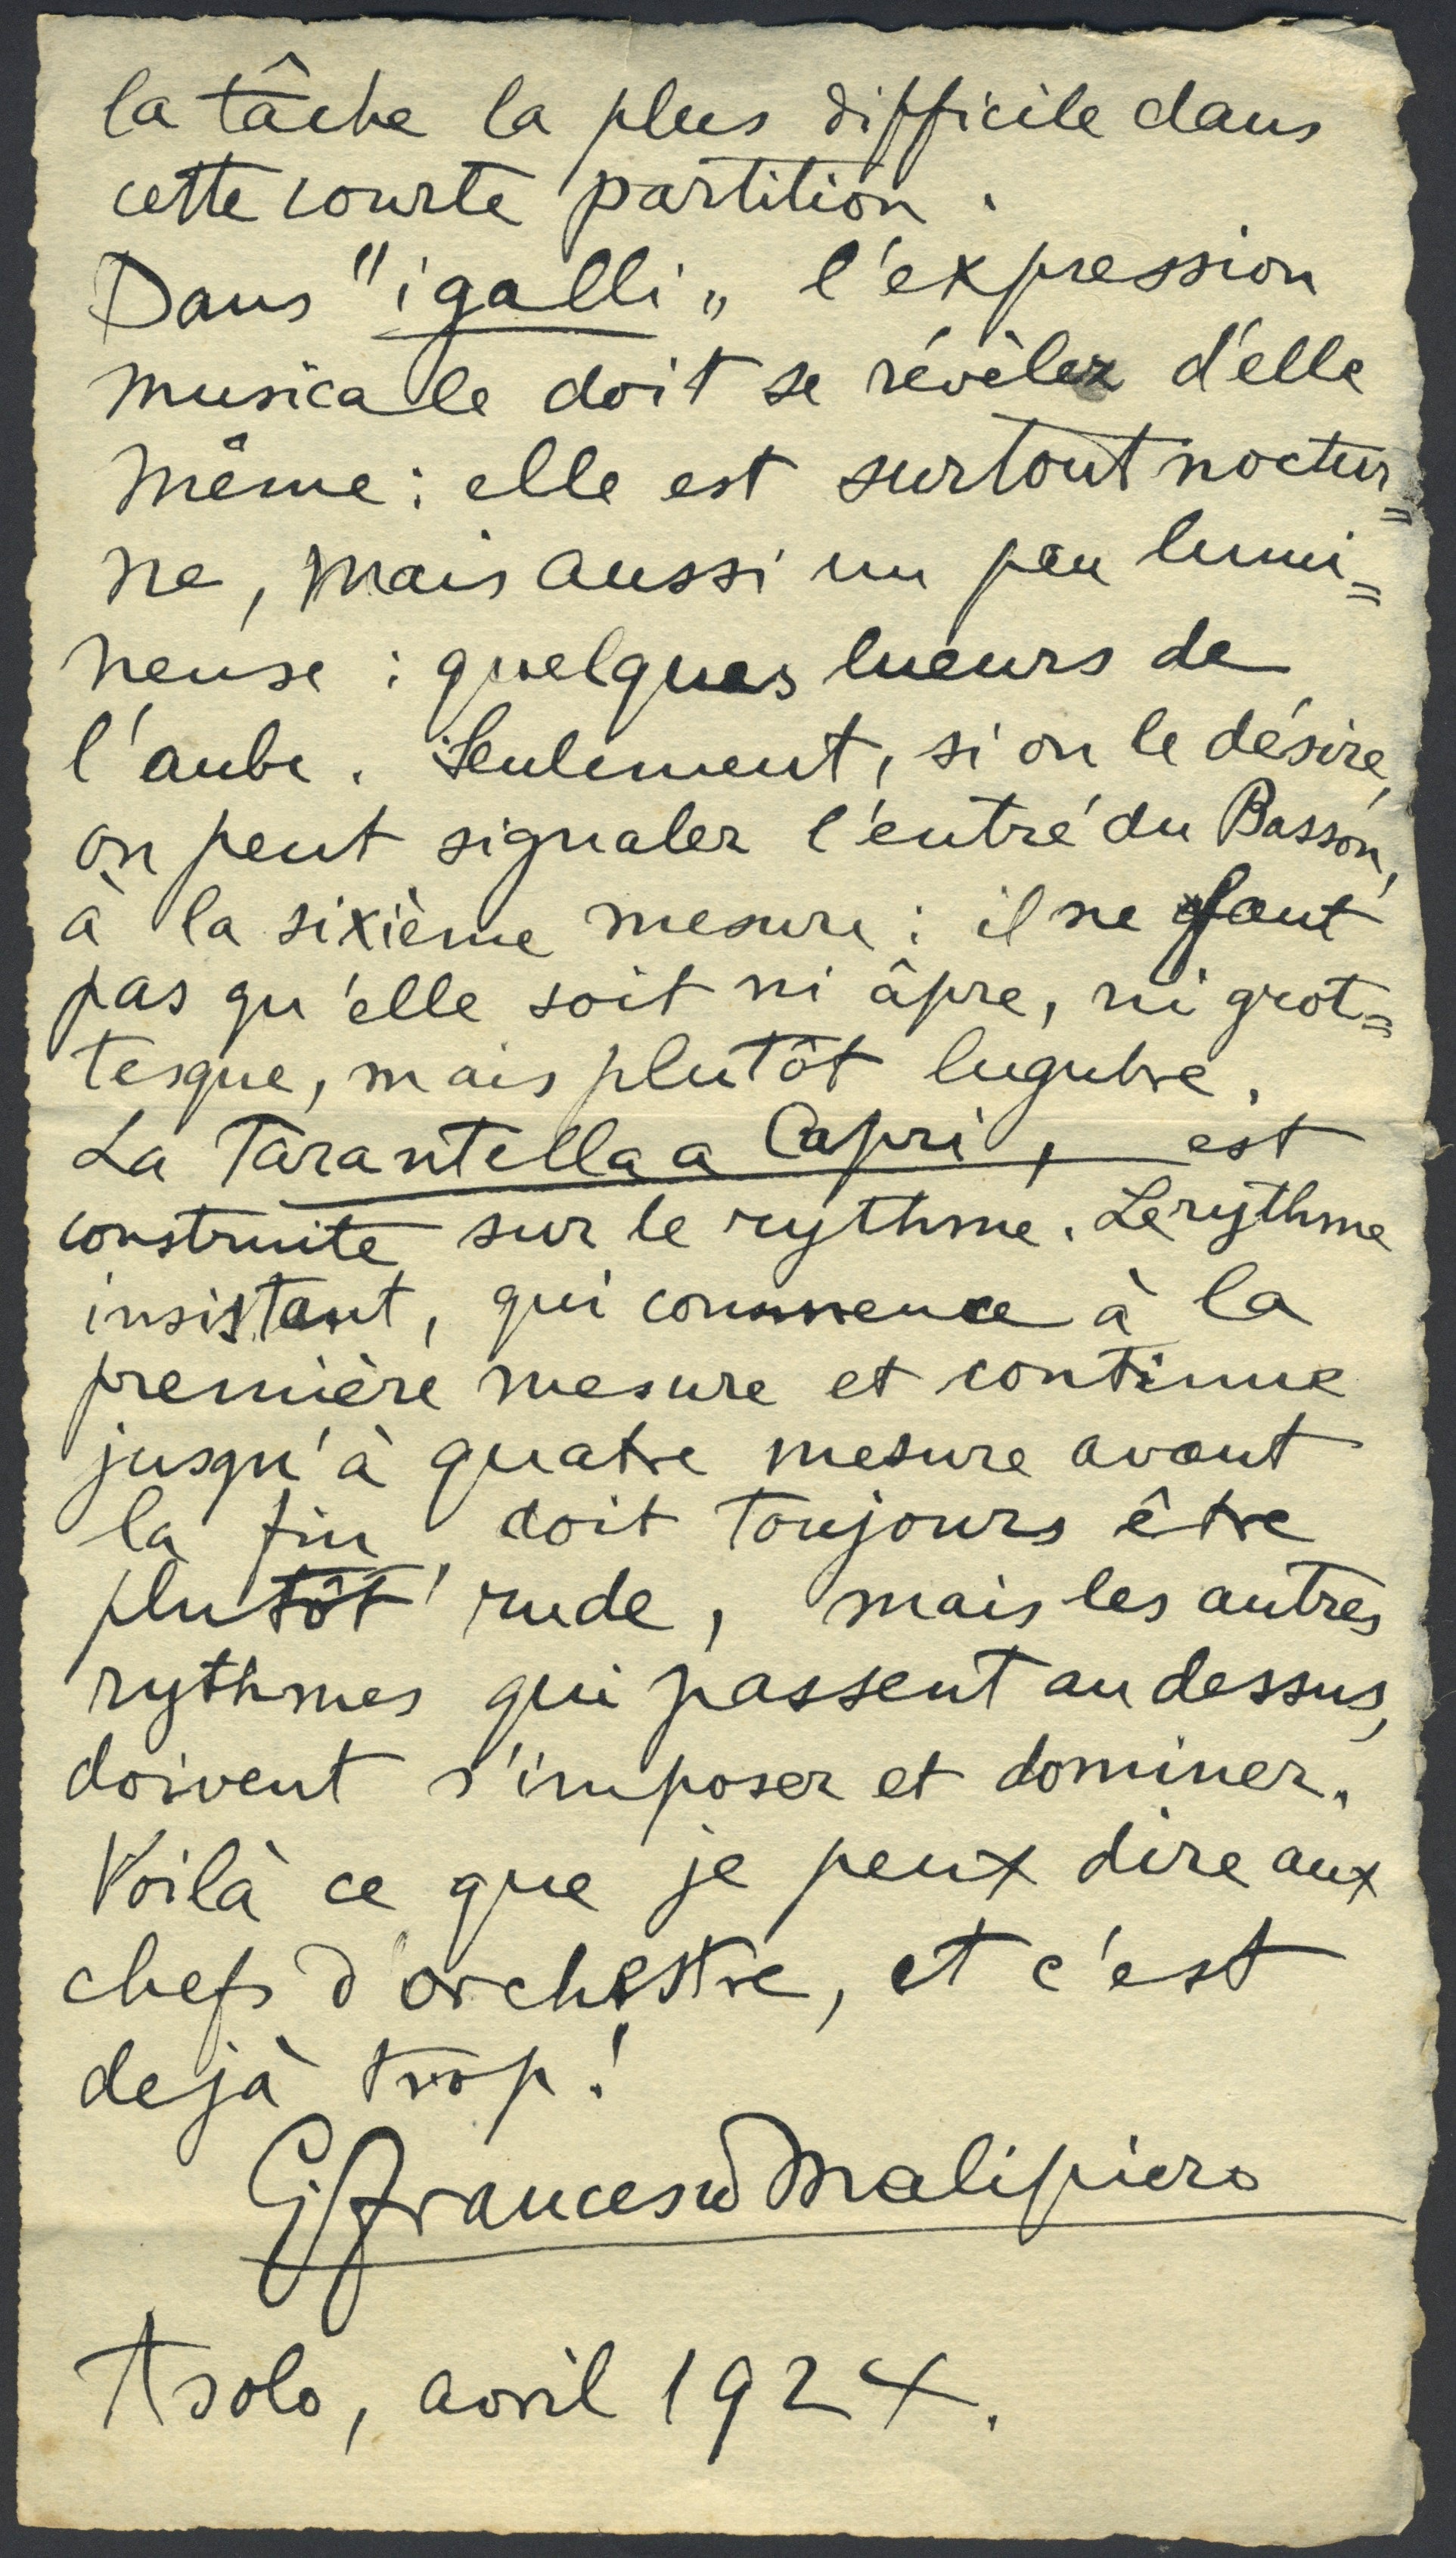 la tâche la plus difficile dans
cette courte partition.
Dans "i galli„ l'expression
musicale doit se révéler d'elle
même : elle est surtout noctur=
ne, mais aussi un peu lumi=
neuse : quelques lueurs de
l'aube. Seulement, si on le désire,
on peut signaler l'entré du Basson,
à la sixième mesure : il ne faut
pas qu'elle soit ni âpre, ni grot=
tesque, mais plutôt lugubre.
La Tarantella a Capri, est
construite sur le rythme. Le rythme
insistant, qui commence à la
première mesure et continue
jusqu'à quatre mesure avant
la fin, doit toujours être
plutôt rude, mais les autres
rythmes qui passent au dessus,
doivent s'imposer et dominer.
Voilà ce que je peux dire aux
chefs d'orchestre, et c'est
dejà trop!
G. Francesco Malipiero
Asolo, avril 1924.